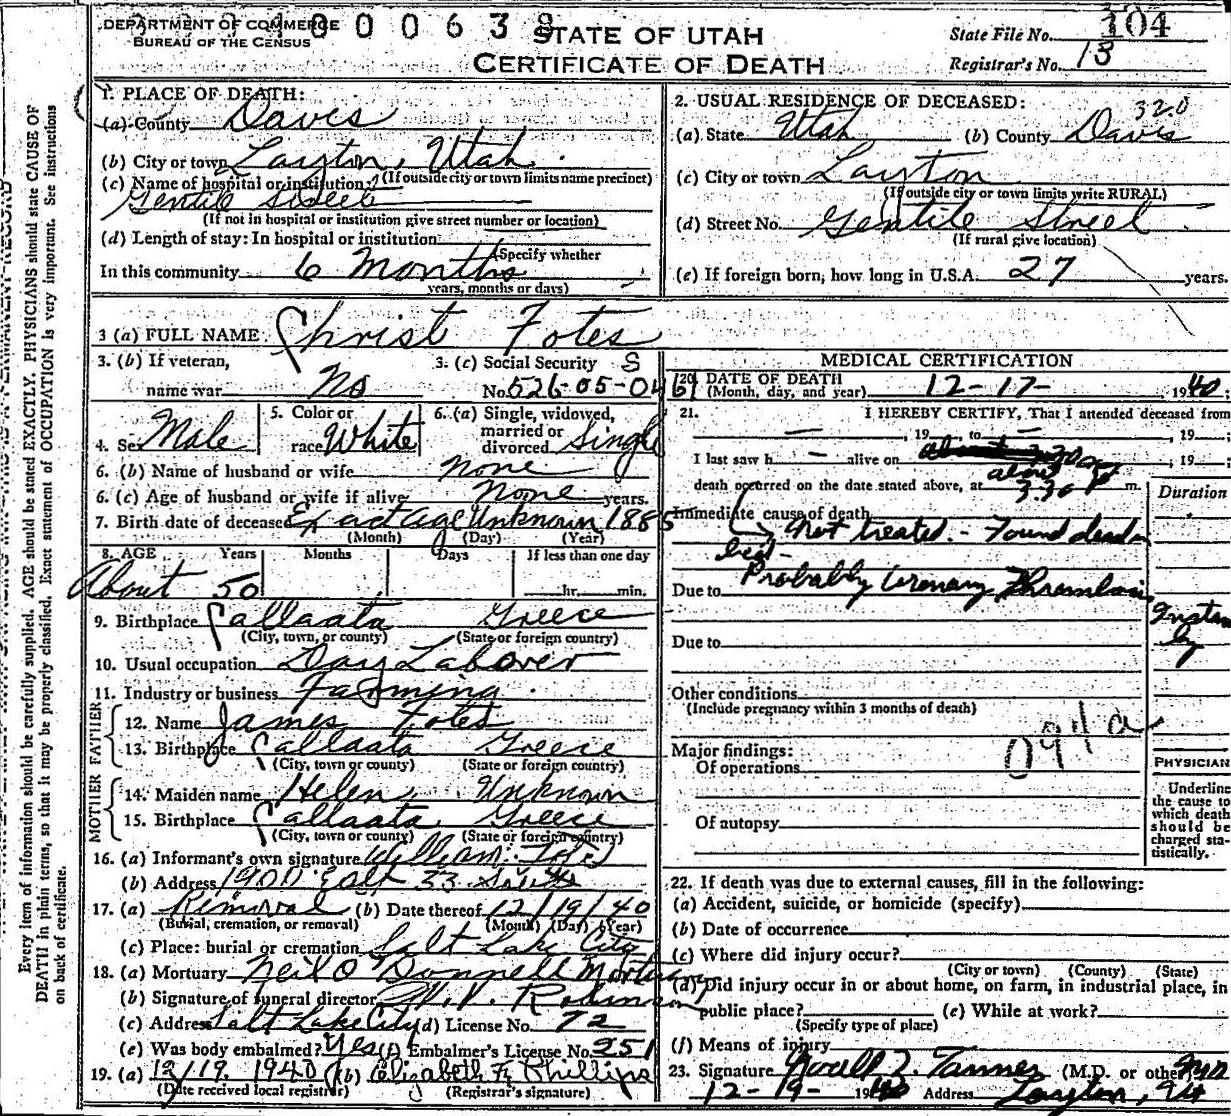 DEPARTMENT OF COMMERCE
BUREAU OF THE CENSUS
0 0 0 6 3 8
STATE OF UTAH
CERTIFICATE OF DEATH
State File No. 104
Registrar's No. 13
Every item of information should be carefully supplied. AGE should be stated EXACTLY. PHYSICIANS should state CAUSE OF
DEATH in plain terms, so that it may be properly classified. Exact statement of OCCUPATION is very important. See instructions
on back of certificate.
1. PLACE OF DEATH:
(a) County Davis
(b) City or town Layton, Utah.
(If outside city or town limits name precinct)
(c) Name of hospital or institution:
Gentile Street
(If not in hospital or institution give street number or location)
(d) Length of stay: In hospital or institution
(Specify whether
In this community 6 Months
years, months or days)
2. USUAL RESIDENCE OF DECEASED:
320
(a) State Utah (b) County Davis
(c) City or town Layton
(If outside city or town limits write RURAL)
(d) Street No. Gentile Street
(If rural give location)
(e) If foreign born, how long in U.S.A. 27 years.
3 (a) FULL NAME Christ Fotes
3. (b) If veteran,
name war No
3. (c) Social Security
No. 526-05-0461
4. Sex Male
5. Color or
race White
6. (a) Single, widowed,
married or
divorced Single
6. (b) Name of husband or wife none
6. (c) Age of husband or wife if alive None years.
7. Birth date of deceased Exact age Unknown 1885
(Month) (Day) (Year)
8. AGE Years Months Days If less than one day
About 50 hr. min.
9. Birthplace Callaata Greece
(City, town, or county) (State or foreign country)
10. Usual occupation Day Laborer
11. Industry or business Farming.
FATHER
12. Name James Fotes
13. Birthplace Callaata Greece
(City, town or county) (State or foreign country)
MOTHER
14. Maiden name Helen Unknown
15. Birthplace Callaata Greece
(City, town or county) (State or foreign country)
16. (a) Informant's own signature William
(b) Address East 33 South
17. (a) Removal (b) Date thereof 12/19/40
(Burial, cremation, or removal) (Month) (Day) (Year)
(c) Place: burial or cremation Salt Lake City
18. (a) Mortuary Neil O'Donnell Mortuary
(b) Signature of funeral director Robinson
(c) Address Salt Lake City (d) License No. 72
(e) Was body embalmed? Yes (f) Embalmer's License No. 251
19. (a) 12/19. 1940 (b) Elizabeth F. Phillips
(Date received local registrar) (Registrar's signature)
MEDICAL CERTIFICATION
20. DATE OF DEATH
(Month, day, and year) 12-17- 1940.
21. I HEREBY CERTIFY, That I attended deceased from
— , 19 , to — , 19
I last saw h — alive on , 19 ;
death occurred on the date stated above, at about 3:30 P m.
Duration
Immediate cause of death
Not treated.- Found dead in
bed-
Due to Probably Coronary Thrombosis
Instantly
Due to
Other conditions
(Include pregnancy within 3 months of death)
094 a
Major findings:
Of operations
Of autopsy
PHYSICIAN
Underline
the cause to
which death
should be
charged sta-
tistically.
22. If death was due to external causes, fill in the following:
(a) Accident, suicide, or homicide (specify)
(b) Date of occurrence
(c) Where did injury occur?
(City or town) (County) (State)
(d) Did injury occur in or about home, on farm, in industrial place, in
public place? (e) While at work?
(Specify type of place)
(f) Means of injury
23. Signature Tanner (M.D. or other)
12-19-1940 Address Layton, Ut